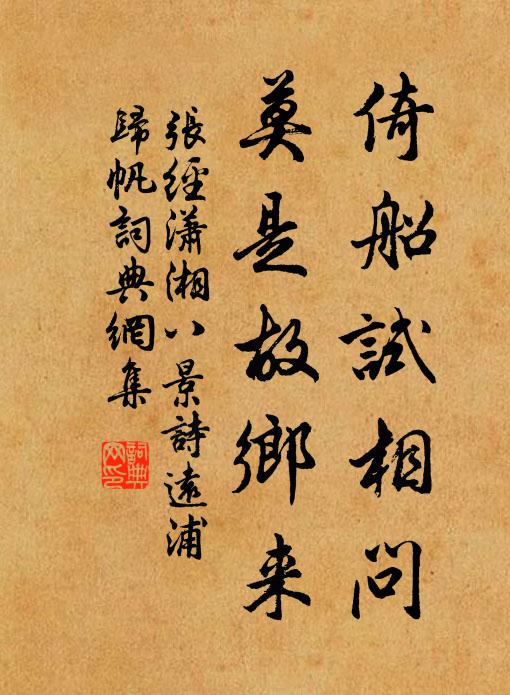 倚船試相問
莫是故鄉来
張經瀟湘八景詩遠浦
歸帆詞典網集
詞典
网印